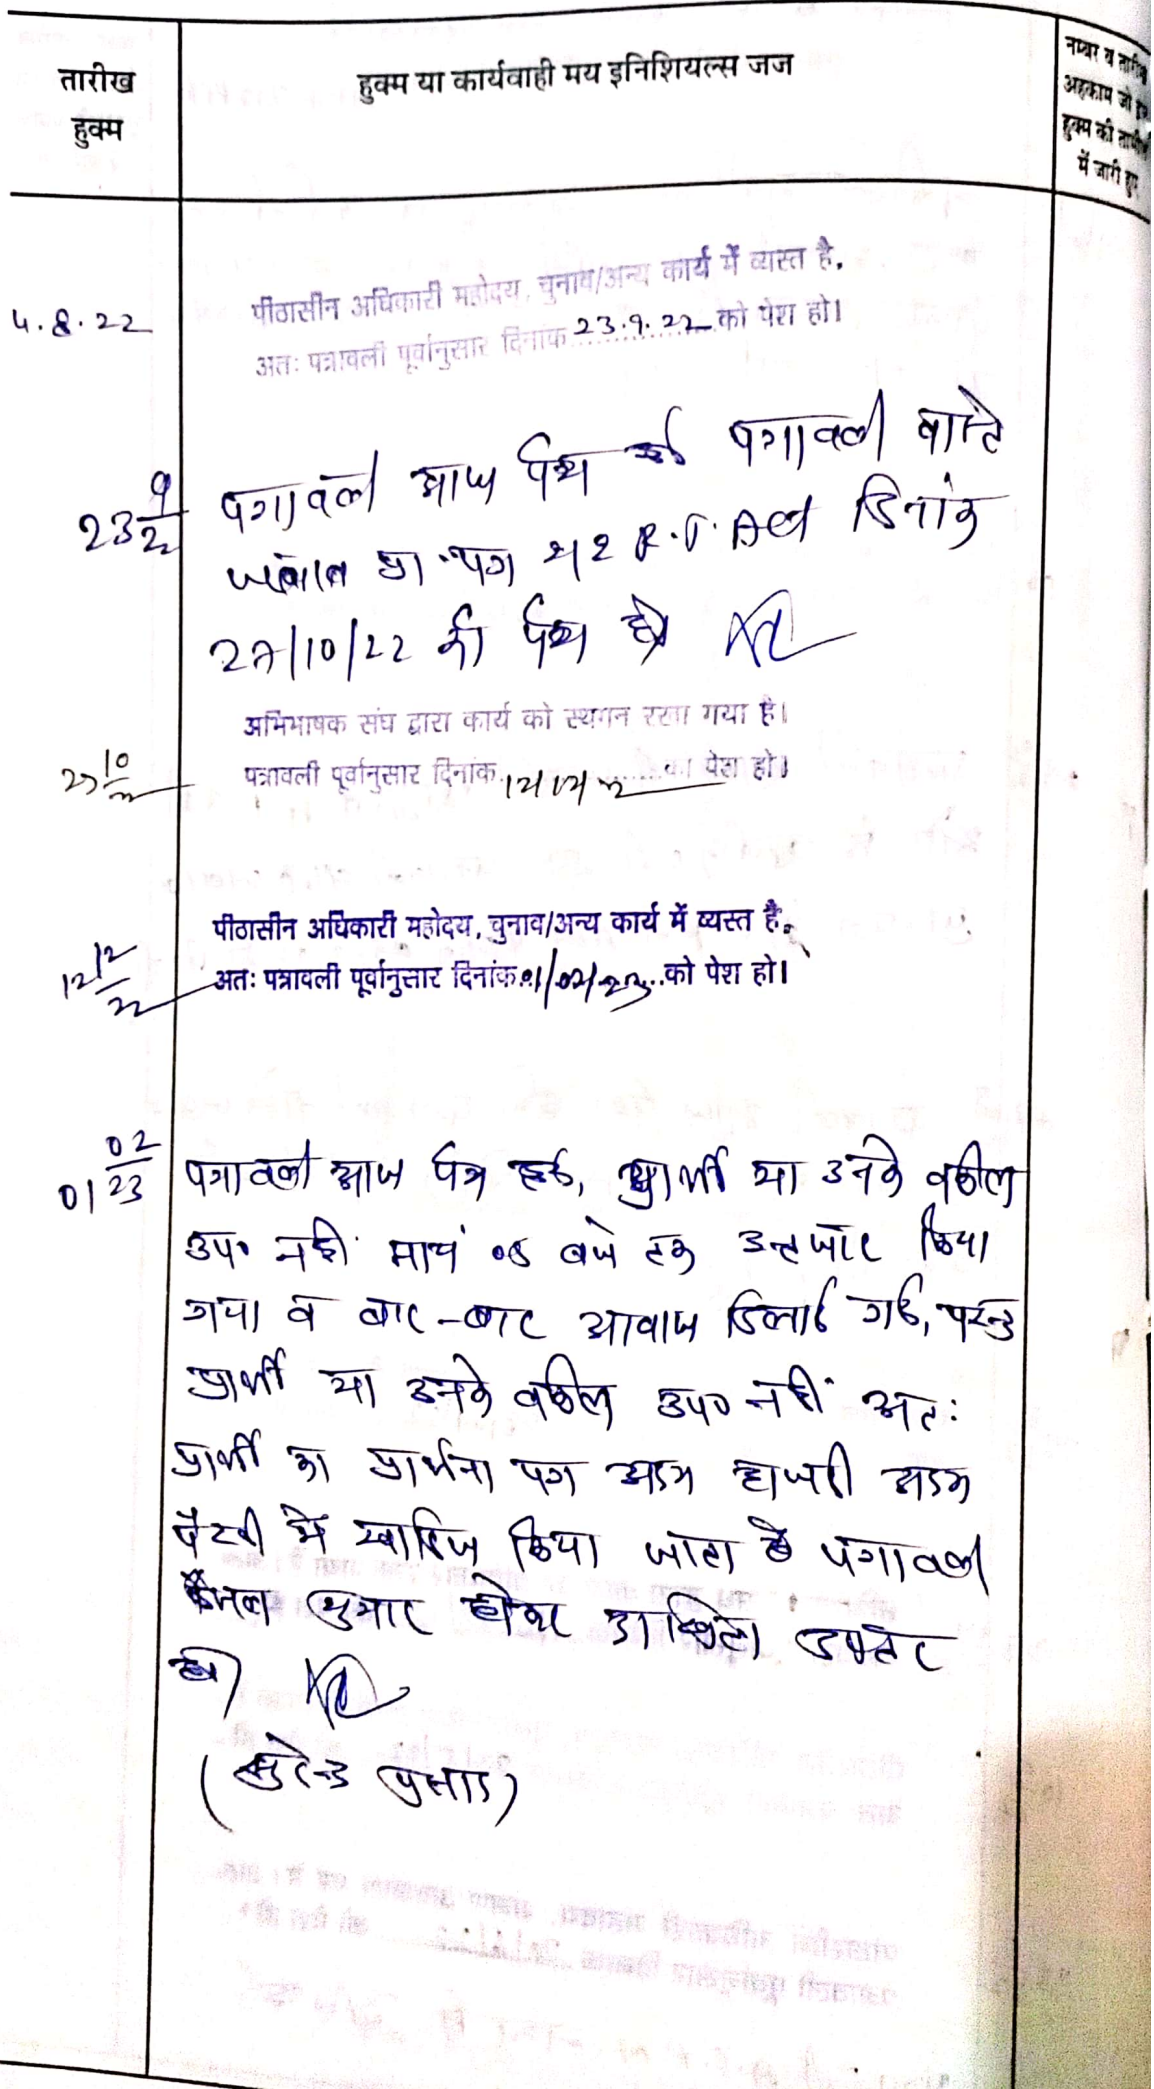 तारीख
हुक्म
हुक्म या कार्यवाही मय इनिशियल्स जज
नम्बर व
अहकाम जो
हुक्म की
में जारी हुए
4.8.22
पीठासीन अधिकारी महोदय, चुनाव/अन्य कार्य में व्यस्त है,
अतः पत्रावली पूर्वानुसार दिनांक 23.9.22 को पेश हो।
23 9/22
पत्रावली आज पेश पत्रावली वास्ते
जवाब प्रा. पत्र 212 R.T. Act दिनांक
27/10/22 को पेश हो
अभिभाषक संघ द्वारा कार्य को स्थगन रखा गया है।
27 10/22
पत्रावली पूर्वानुसार दिनांक 12/12/22 को पेश हो।
पीठासीन अधिकारी महोदय, चुनाव/अन्य कार्य में व्यस्त है,
12 12/22
अतः पत्रावली पूर्वानुसार दिनांक 01/02/23 को पेश हो।
01 02/23
पत्रावली आज पेश हुई, प्रार्थी या उनके वकील
उप० नहीं सायं 05 बजे तक इन्तजार किया
गया व बार-बार आवाज दिलाई गई, परन्तु
प्रार्थी या उनके वकील उप० नहीं अतः
प्रार्थी का प्रार्थना पत्र अदम हाजरी अदम
पैरवी में खारिज किया जाता है पत्रावली
फैसल शुमार होकर दाखिल दफ्तर
हो
(सुरेन्द्र प्रसाद)